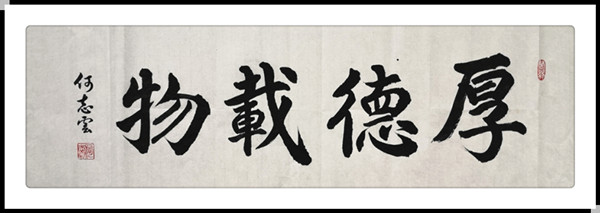 厚德載物
何志雲